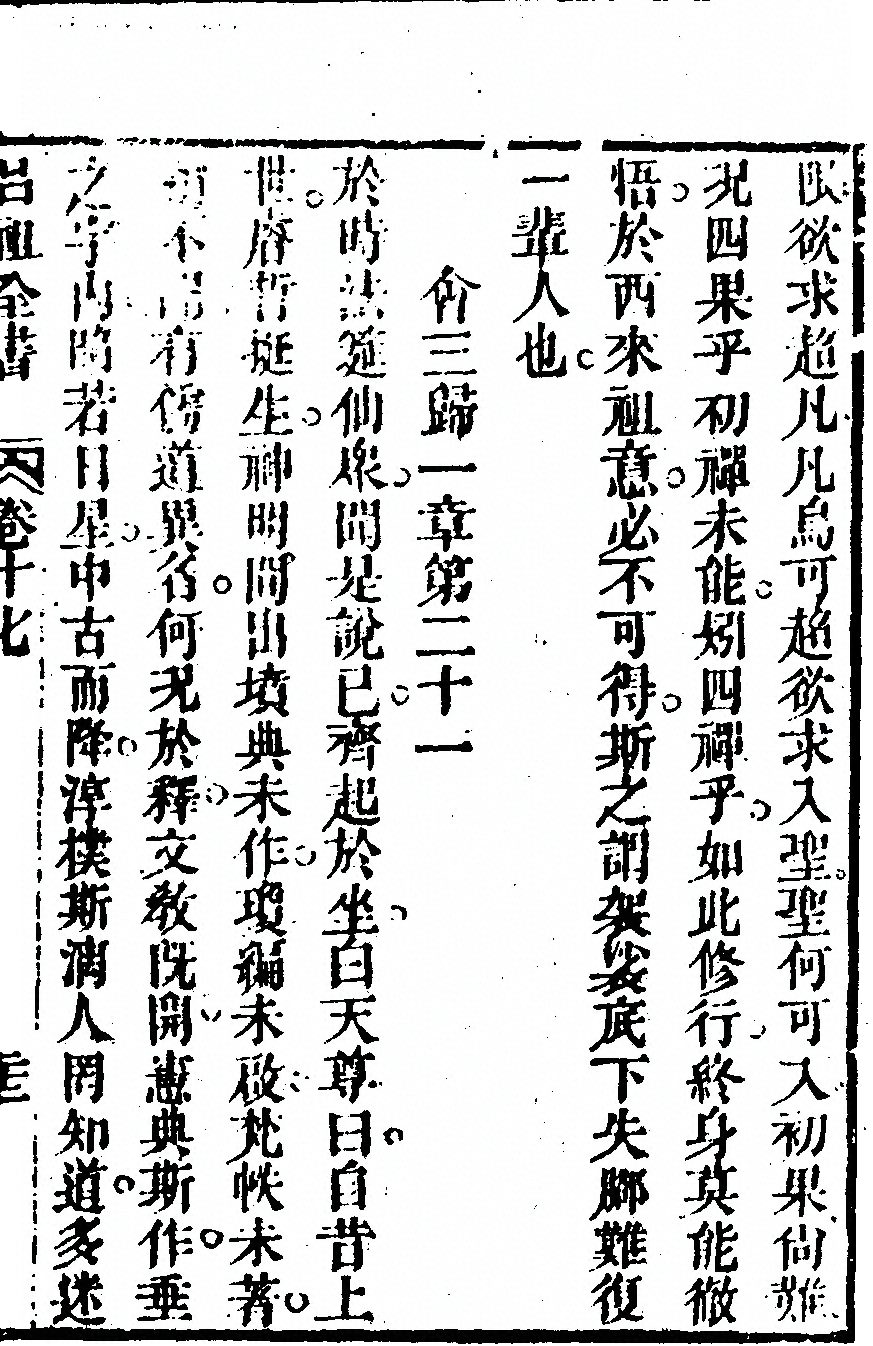 限欲求超凡凡烏可超欲求入聖聖何可入初果尚難
況四果乎初禪未能矧四禪乎如此修行終身莫能徹
悟於西來祖意必不可得斯之謂袈裟底下失腳難復
一輩人也
仵三歸一章第二十一
於時法筵仙衆聞是說已齊起於坐白天尊曰自昔上
世睿哲挺生神明間出墳典未作瓊編未啟梵帙未著
不聞有儒道異名何況於釋文敎既開憲典斯作垂
之宇內皎若日星中古而降淳樸斯漓人罔知道多迷
呂祖全書 卷十七